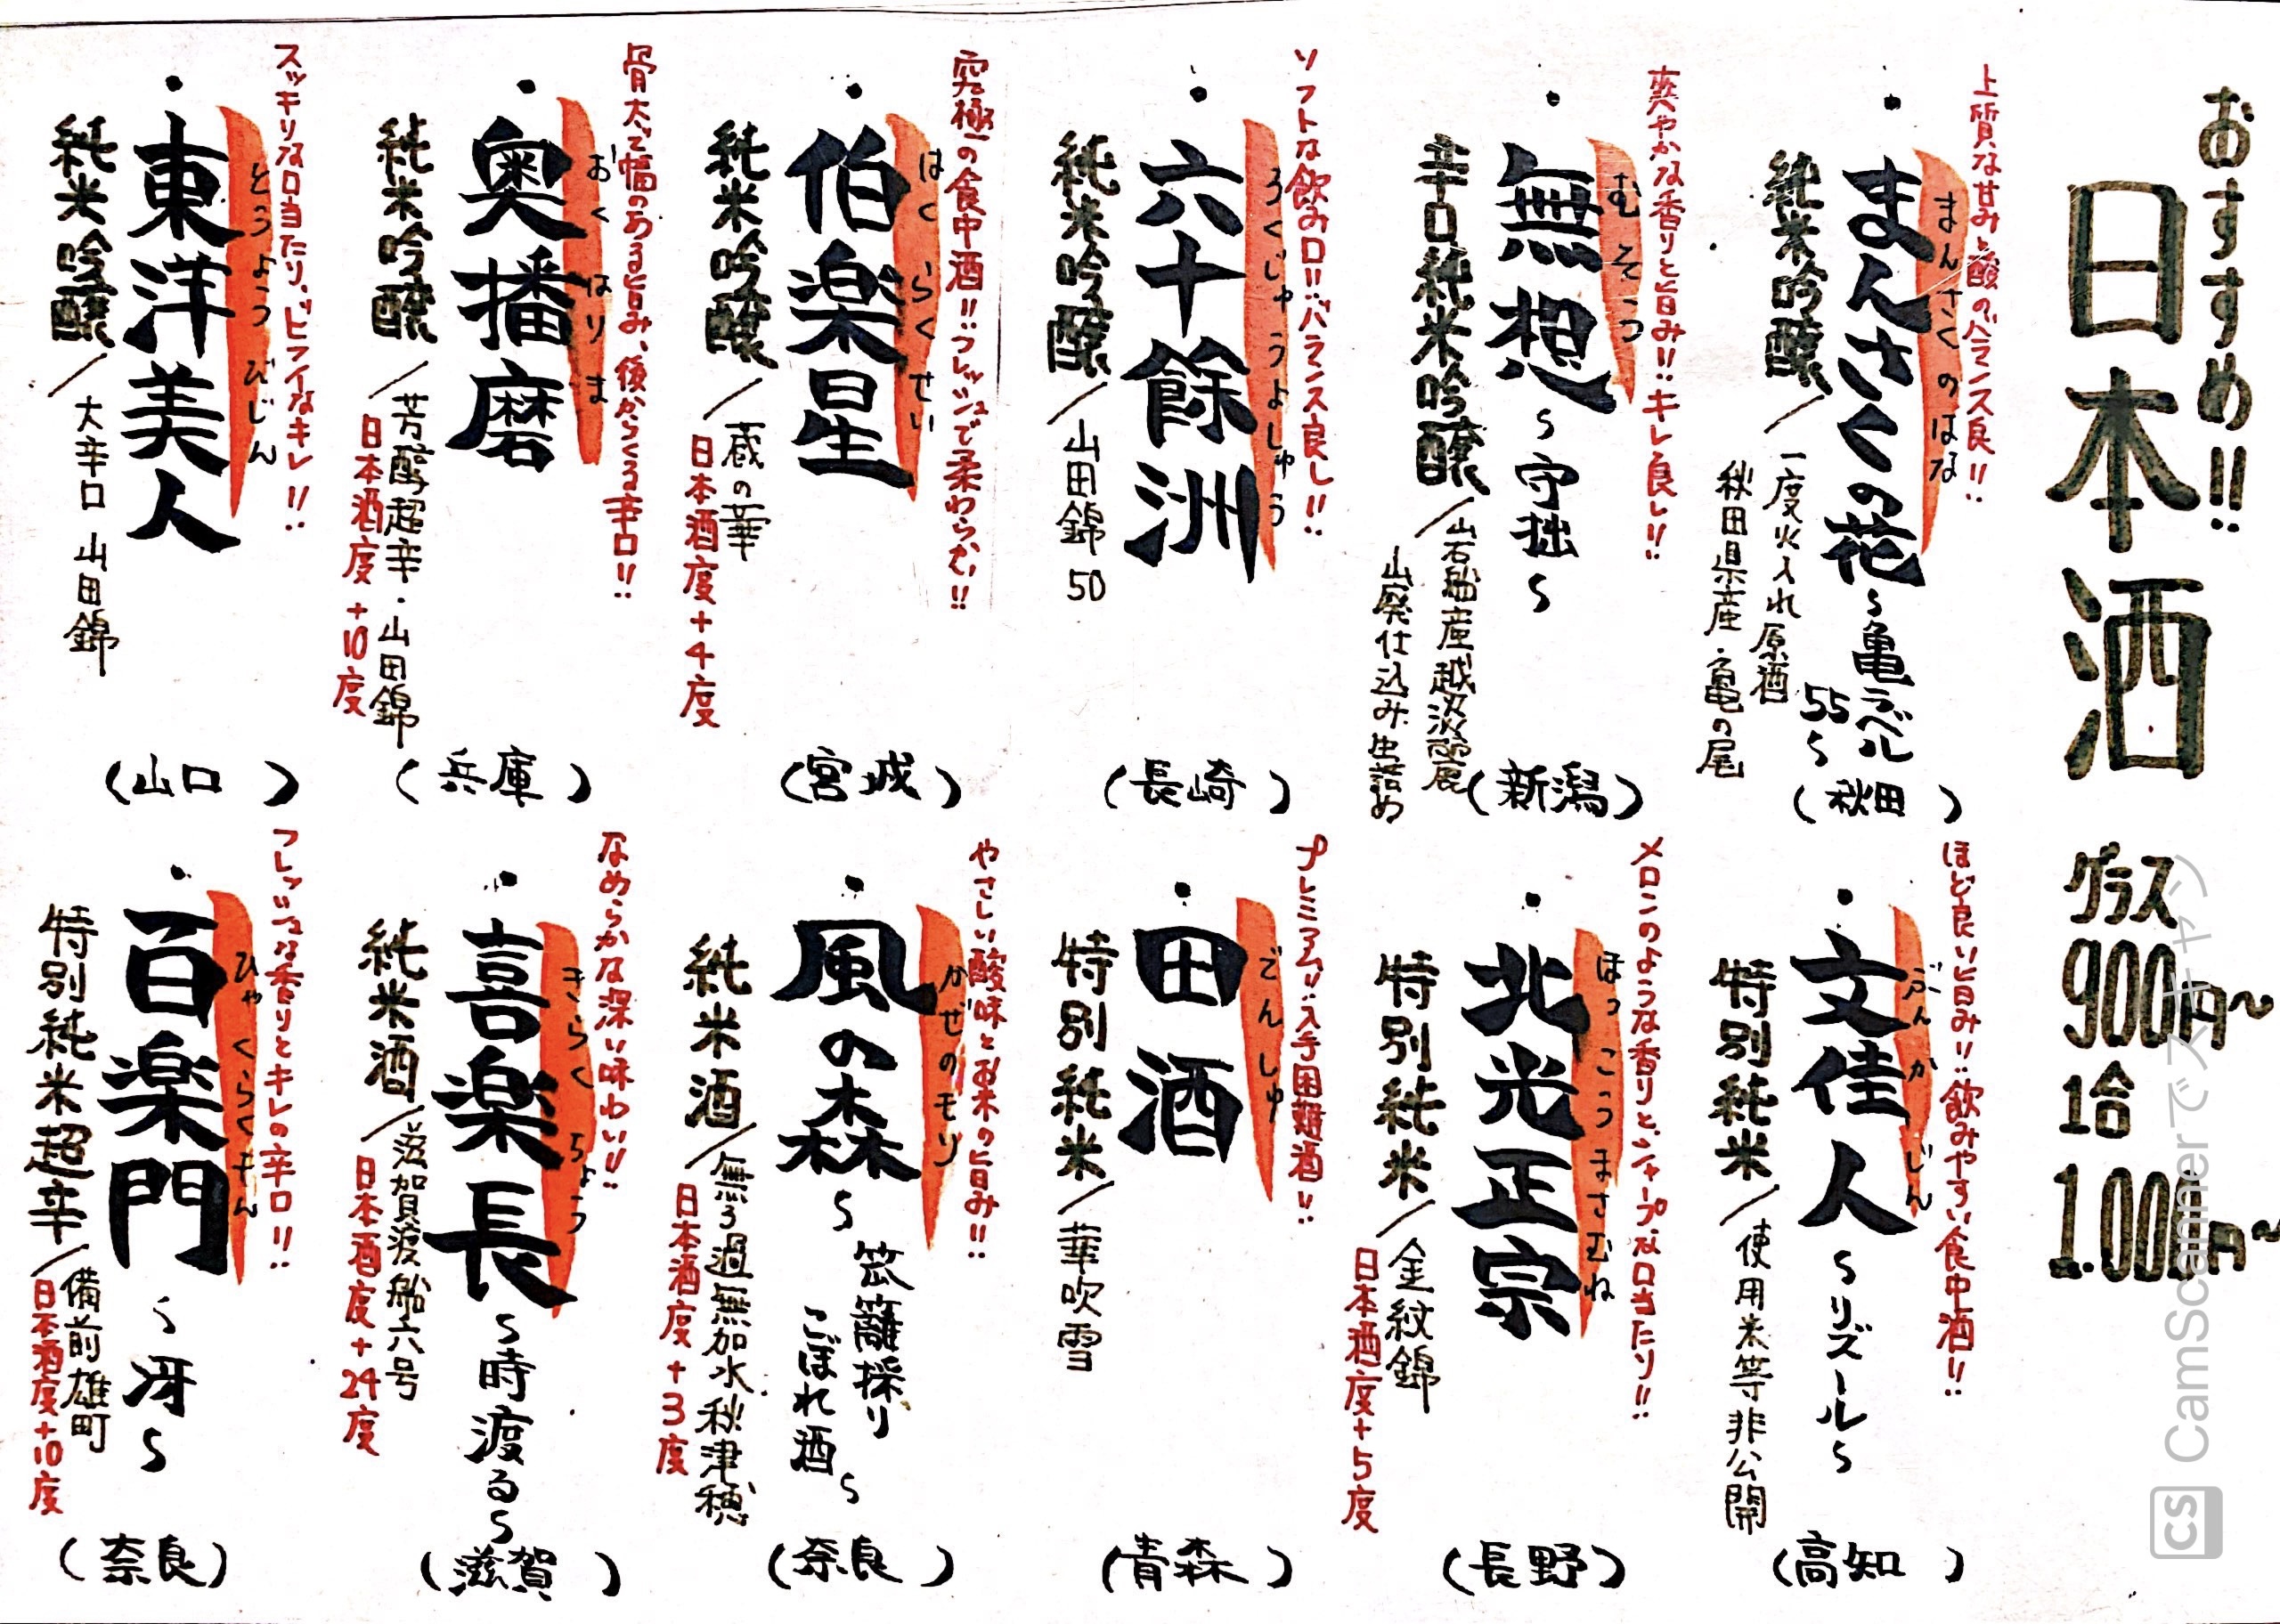 おすすめ!!
日本酒
グラス
900円~
1合
1.00円~
上質な甘みと酸のバランス良!!
まんさくのはな
・まんさくの花~亀ラベル
55~
純米吟醸/一度火入れ原酒
秋田県産・亀の尾
(秋田)
爽やかな香りと旨み!!キレ良し!!
むそう
・無想~守拙~
辛口純米吟醸/岩船産越淡麗
山廃仕込み生詰め
(新潟)
ソフトな飲み口!!バランス良し!!
ろくじゅうよしゅう
・六十餘洲
純米吟醸/山田錦50
(長崎)
究極の食中酒!!フレッシュで柔わらむ!!
はくらくせい
・伯楽星
純米吟醸/蔵の華
日本酒度+4度
(宮城)
骨太で幅のある旨み、後からくる辛口!!
おくはりま
・奥播磨
純米吟醸/芳醇超辛・山田錦
日本酒度+10度
(兵庫)
スッキリな口当たり、ドライなキレ!!
とうようびじん
・東洋美人
純米吟醸/大辛口 山田錦
(山口)
ほど良い旨み!!飲みやすい食中酒!!
ぶんかじん
・文佳人~リズール~
特別純米/使用米等非公開
(高知)
メロンのような香りと、シャープな口当たり!!
ほっこうまさむね
・北光正宗
特別純米/金紋錦
日本酒度+5度
(長野)
プレミアム!!入手困難酒!!
でんしゅ
・田酒
特別純米/華吹雪
(青森)
やさしい酸味とお米の旨み!!
かぜのモリ
・風の森~笊籬採り
こぼれ酒~
純米酒/無ろ過無加水秋津穂
日本酒度+3度
(奈良)
なめらかな深い味わい!!
きらくちょう
・喜楽長~時渡る~
純米酒/滋賀渡船六号
日本酒度+24度
(滋賀)
フレッシュな香りとキレの辛口!!
ひゃくらくもん
・百楽門~冴~
特別純米超辛/備前雄町
日本酒度+10度
(奈良)
CS CamScannerでスキャン